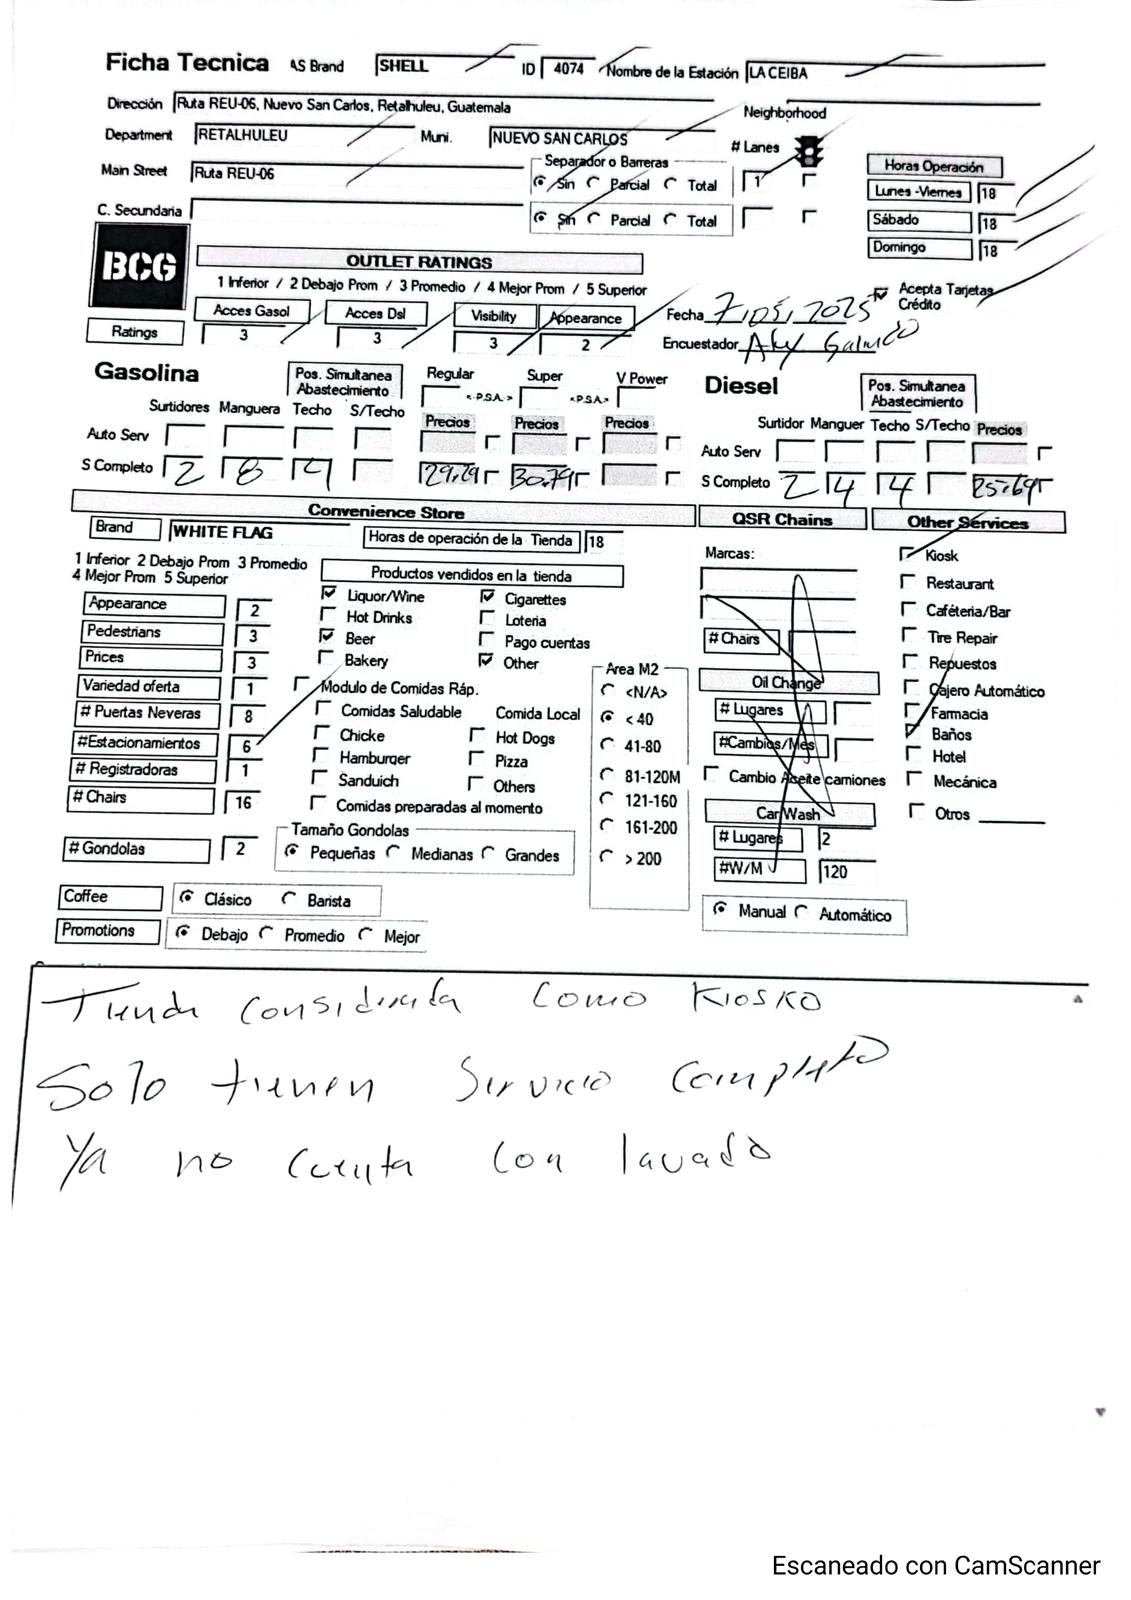 Ficha Tecnica AS Brand SHELL ID 4074 Nombre de la Estación LA CEIBA
Dirección Ruta REU-06, Nuevo San Carlos, Retalhuleu, Guatemala
Neighborhood
Department RETALHULEU Muni. NUEVO SAN CARLOS # Lanes
Main Street Ruta REU-06 Separador o Barreras Sin Parcial Total 1
C. Secundaria Sin Parcial Total
Horas Operación
Lunes -Viernes 18
Sábado 18
Domingo 18
BCG
OUTLET RATINGS
1 Inferior / 2 Debajo Prom / 3 Promedio / 4 Mejor Prom / 5 Superior
Acces Gasol Acces Dsl Visibility Appearance
Ratings 3 3 3 2
Acepta Tarjetas Crédito
Fecha 7/05/2025
Encuestador Alex
Gasolina Pos. Simultanea Abastecimiento Regular <-P.S.A.-> Super <-P.S.A.-> V Power
Surtidores Manguera Techo S/Techo Precios Precios Precios
Auto Serv
S Completo 2 8 4 29.29 30.79
Diesel Pos. Simultanea Abastecimiento
Surtidor Manguer Techo S/Techo Precios
Auto Serv
S Completo 2 4 4 25.69
Convenience Store
Brand WHITE FLAG Horas de operación de la Tienda 18
1 Inferior 2 Debajo Prom 3 Promedio
4 Mejor Prom 5 Superior
Appearance 2
Pedestrians 3
Prices 3
Variedad oferta 1
# Puertas Neveras 8
#Estacionamientos 6
# Registradoras 1
# Chairs 16
# Gondolas 2
Productos vendidos en la tienda
Liquor/Wine Cigarettes
Hot Drinks Loteria
Beer Pago cuentas
Bakery Other
Modulo de Comidas Ráp.
Comidas Saludable Comida Local
Chicke Hot Dogs
Hamburger Pizza
Sanduich Others
Comidas preparadas al momento
Tamaño Gondolas
Pequeñas Medianas Grandes
Area M2
<N/A>
< 40
41-80
81-120M
121-160
161-200
> 200
Coffee Clásico Barista
Promotions Debajo Promedio Mejor
QSR Chains
Marcas:
# Chairs
Oil Change
# Lugares
#Cambios/Mes
Cambio Aseite camiones
Car Wash
# Lugares 2
#W/M 120
Manual Automático
Other Services
Kiosk
Restaurant
Caféteria/Bar
Tire Repair
Repuestos
Cajero Automático
Farmacia
Baños
Hotel
Mecánica
Otros
Tienda considerada como Kiosko
Solo tienen Servicio completo
Ya no cuenta con lavado
Escaneado con CamScanner